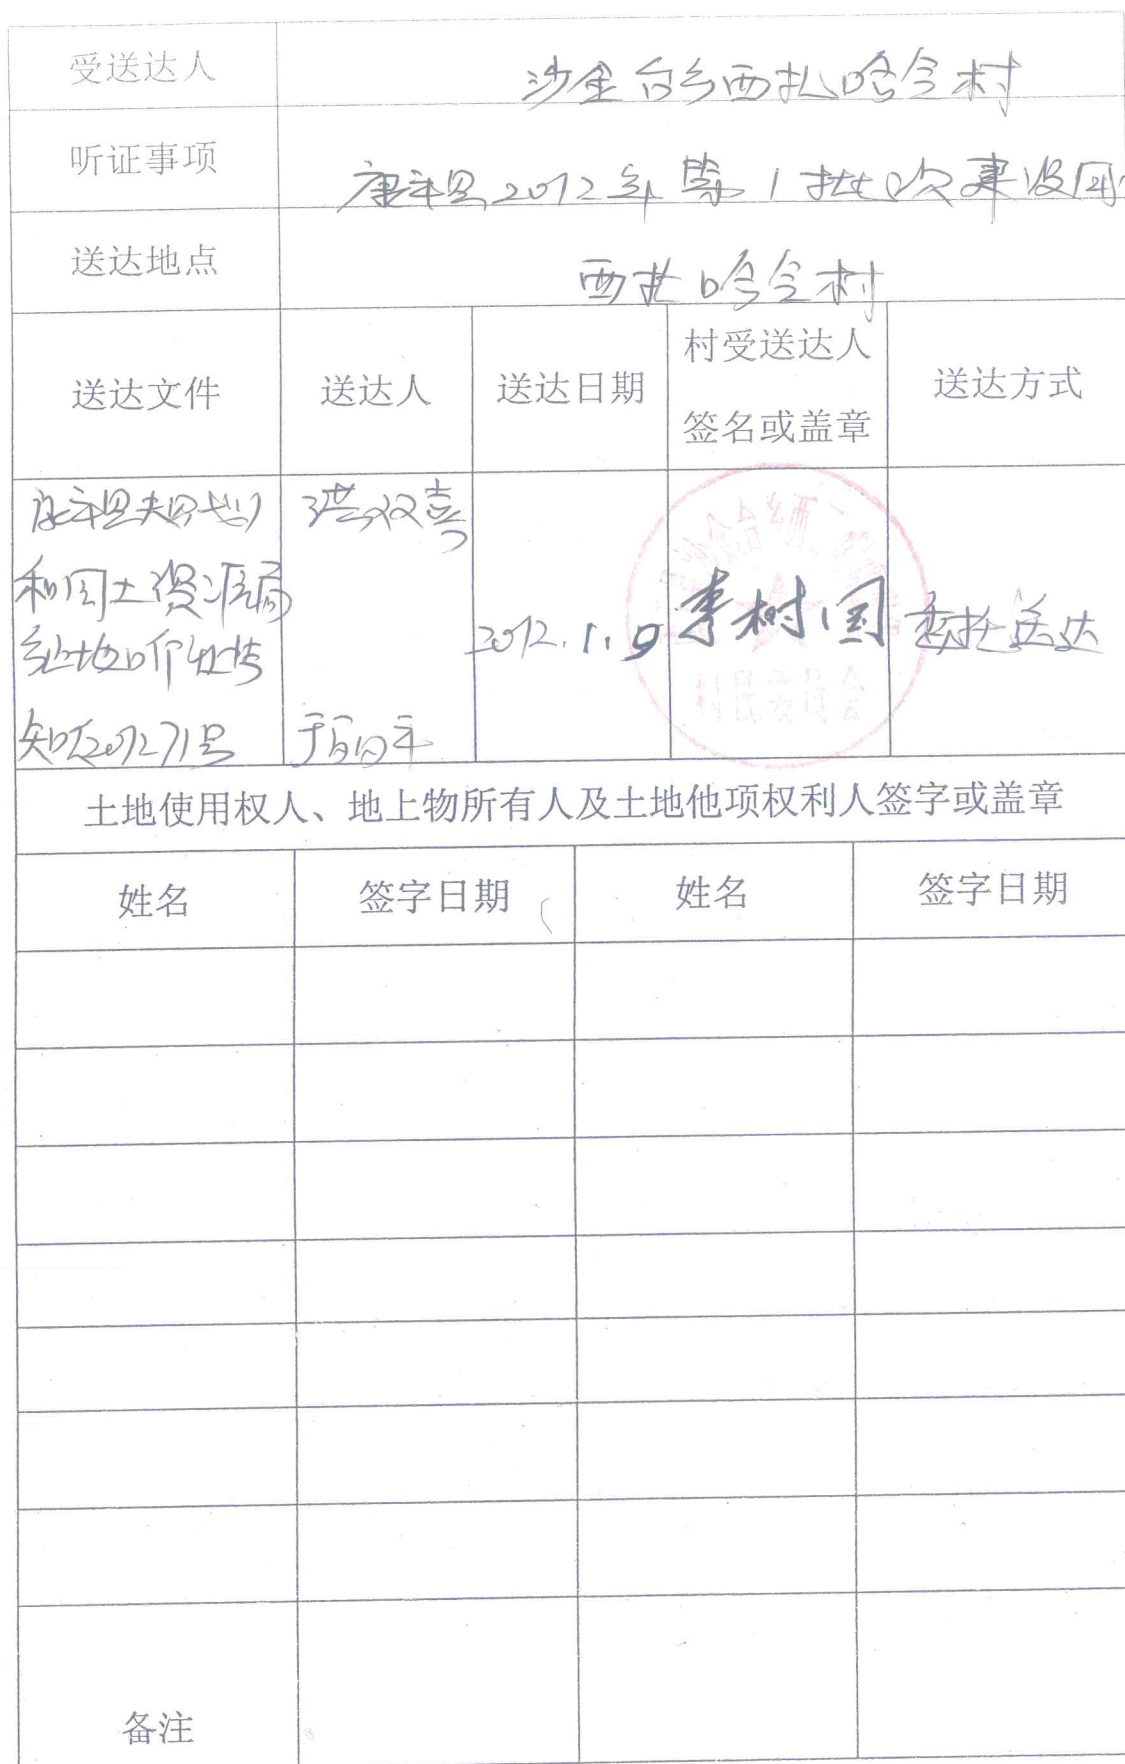 受送达人
沙金台乡西扎哈令村
听证事项
康平县2012年第1批次建设用
送达地点
西扎哈令村
送达文件
送达人
送达日期
村受送达人
签名或盖章
送达方式
康平县规划
和国土资源局
知 2012 71号
洪双喜
于
2012.1.9
李树国
委托送达
村民委员会
土地使用权人、地上物所有人及土地他项权利人签字或盖章
姓名
签字日期
姓名
签字日期
备注